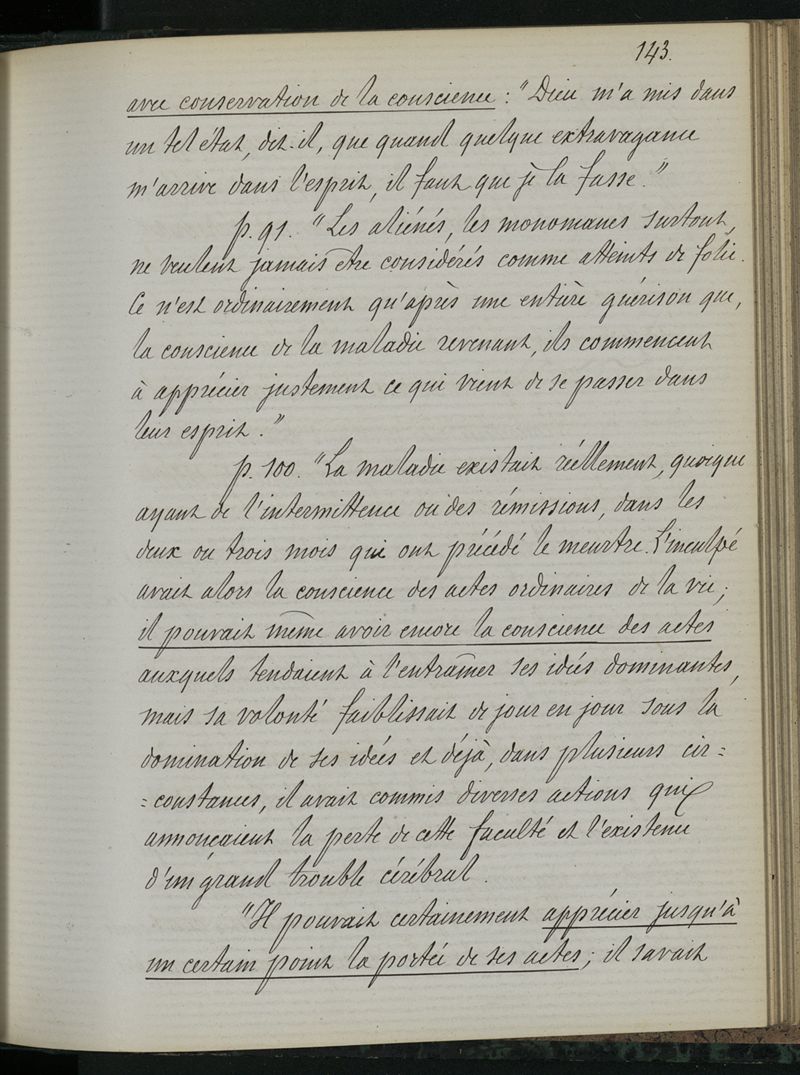 143.
avec conservation de la conscience : "Dieu m'a mis dans
un tel état, dit-il, que quand quelque extravagance
m'arrive dans l'esprit, il faut que je la fasse."
p. 91. "Les aliénés, les monomanes surtout,
ne veulent jamais être considérés comme atteints de folie.
Ce n'est ordinairement qu'après une entière guérison que,
la conscience de la maladie revenant, ils commencent
à apprécier justement ce qui vient de se passer dans
leur esprit."
p. 100. "La maladie existait réellement, quoique
ayant de l'intermittence ou des rémissions, dans les
deux ou trois mois qui ont précédé le meurtre. L'inculpé
avait alors la conscience des actes ordinaires de la vie;
il pouvait même avoir encore la conscience des actes
auxquels tendaient à l'entraîner ses idées dominantes,
mais sa volonté faiblissait de jour en jour sous la
domination de ses idées et déjà, dans plusieurs cir=
=constances, il avait commis diverses actions qui
annonçaient la perte de cette faculté et l'existence
d'un grand trouble cérébral.
"Il pouvait certainement apprécier jusqu'à
un certain point la portée de ses actes; il savait